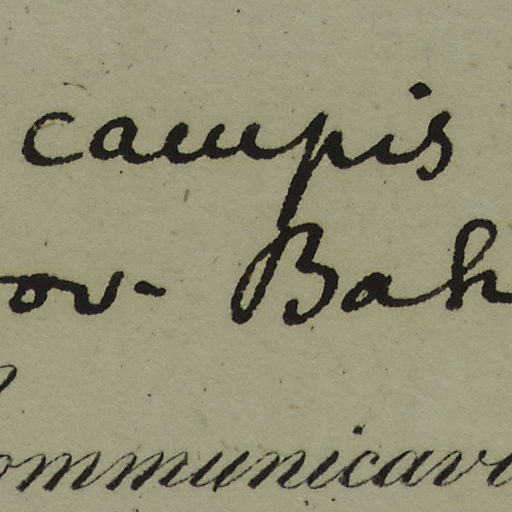 campis
ov. Bah
ommunicavi